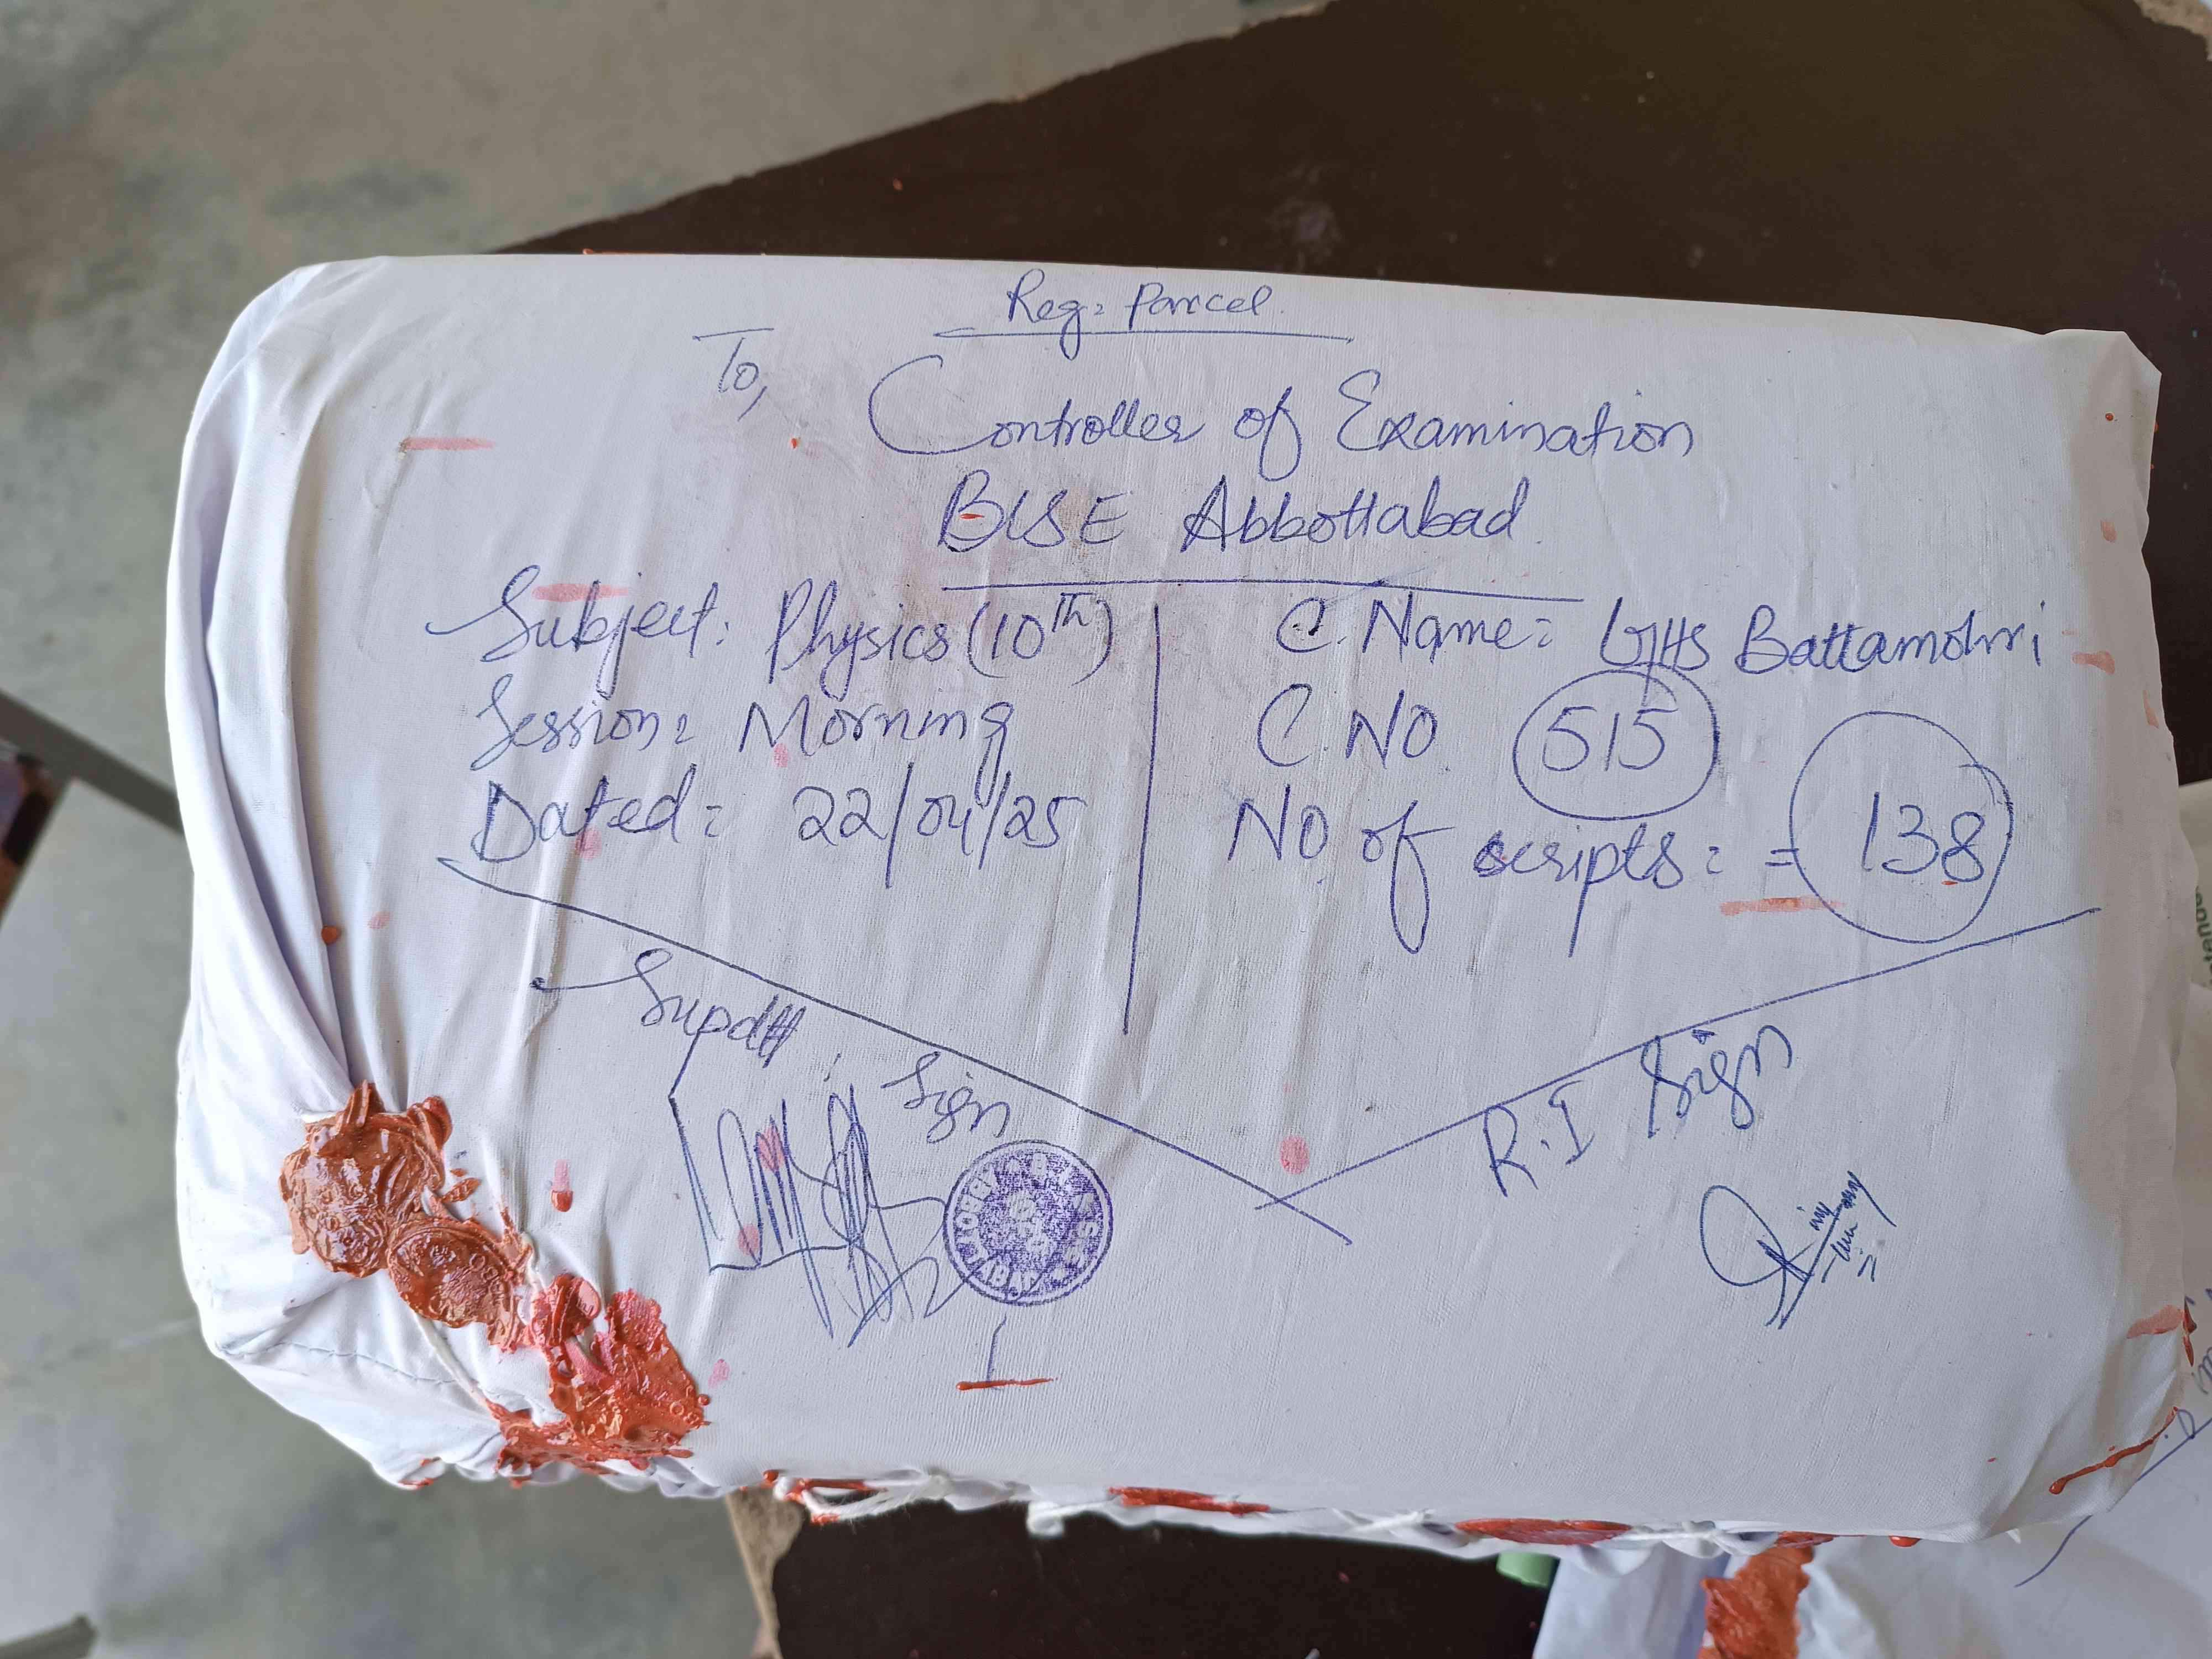 Reg: Parcel.
To,
Controller of Examination
BISE Abbottabad.
Subject: Physics (10th)
Session: Morning
Dated: 22/04/25
C. Name: GHS Battamohri
C. NO. 515
NO. of scripts: = 138
Supdtt: Sign
R.I Sign